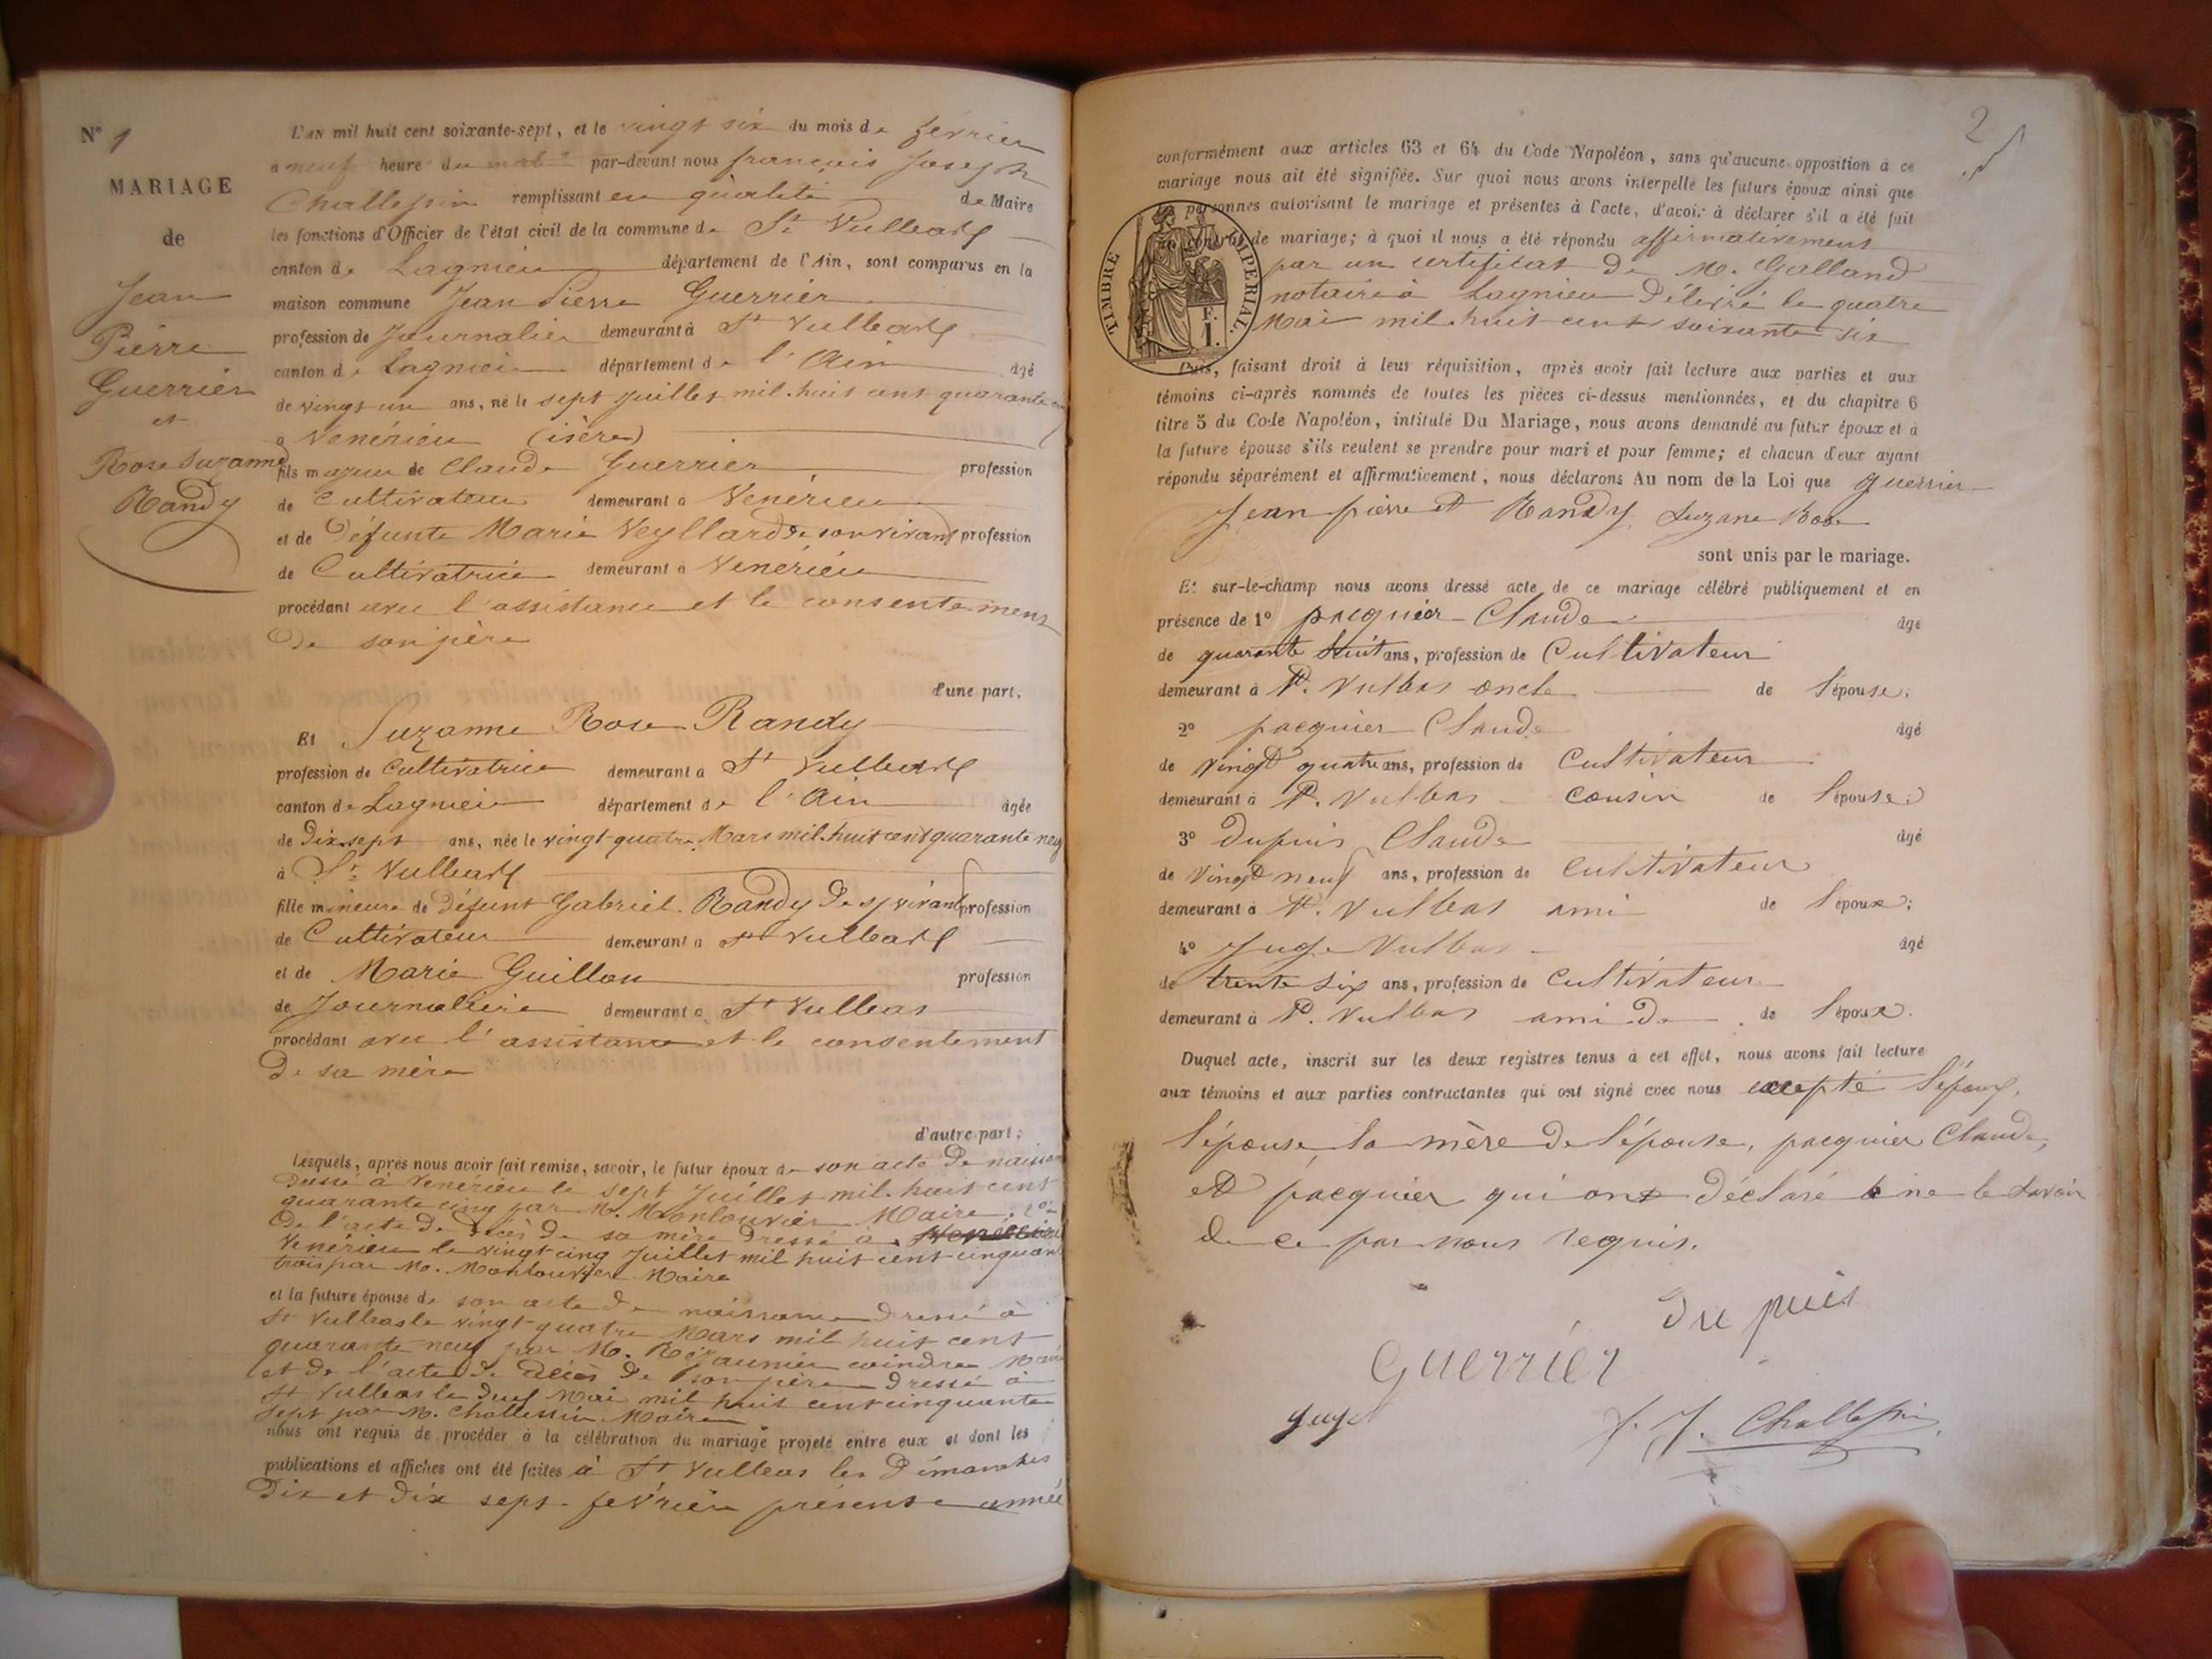 N° 1
MARIAGE
de
Jean
Pierre
Guerrier
et
Rose Suzanne
Randy
L'AN mil huit cent soixante-sept, et le vingt six du mois de février
a neuf heure du matin par-devant nous françois Joseph
Challessin remplissant en qualité de Maire
les fonctions d'Officier de l'état civil de la commune de St Vulbas
canton de Lagnieu département de l'Ain, sont comparus en la
maison commune Jean Pierre Guerrier
profession de Journalier demeurant à St Vulbas
canton de Lagnieu département de l'Ain âgé
de vingt un ans, né le sept juillet mil huit cent quarante cinq
à Venérieu (isère)
fils majeur de Claude Guerrier profession
de Cultivateur demeurant à Venérieu
et de Défunte Marie Veyllard de son vivant profession
de Cultivatrice demeurant à Venérieu
procédant avec l'assistance et le consentement
De son père
d'une part.
Et Suzanne Rose Randy
profession de Cultivatrice demeurant à St Vulbas
canton de Lagnieu département de l'Ain âgée
de Dix sept ans, née le vingt quatre Mars mil huit cent quarante neuf
à St Vulbas
fille mineure de Défunt Gabriel Randy De s/ vivant profession
de Cultivateur demeurant à St Vulbas
et de Marie Guillon profession
de Journalière demeurant à St Vulbas
procédant avec l'assistance et le consentement
De sa mère
d'autre part;
Lesquels, après nous avoir fait remise, savoir, le futur époux de son acte De naissance
Dressé à Venérieu le sept Juillet mil huit cent
quarante cinq par M. Monlouvier Maire, 2°
De l'acte De Décès De sa mère Dressé à
Venérieu le vingt cinq Juillet mil huit cent cinquante
trois par M. Monlouvier Maire
et la future épouse de son acte De naissance Dressé à
St Vulbas le vingt quatre Mars mil huit cent
quarante neuf par M. coindre Maire
et De l'acte De décès De son père Dressé à
St Vulbas le Mai mil huit cent cinquante
sept par M. Challessin Maire
nous ont requis de procéder à la célébration du mariage projeté entre eux et dont les
publications et affiches ont été faites à St Vulbas les Dimanches
Dix et Dix sept février présente année
2
conformément aux articles 63 et 64 du Code Napoléon, sans qu'aucune opposition à ce
mariage nous ait été signifiée. Sur quoi nous avons interpellé les futurs époux ainsi que
personnes autorisant le mariage et présentes à l'acte, d'avoir à déclarer s'il a été fait
contrat de mariage; à quoi il nous a été répondu affirmativement
par un certificat De M. Galland
notaire à Lagnieu Délivré le quatre
Mai mil huit cent soixante six
TIMBRE IMPERIAL.
F.
1.
Puis, faisant droit à leur réquisition, après avoir fait lecture aux parties et aux
témoins ci-après nommés de toutes les pièces ci-dessus mentionnées, et du chapitre 6
titre 5 du Code Napoléon, intitulé Du Mariage, nous avons demandé au futur époux et à
la future épouse s'ils veulent se prendre pour mari et pour femme; et chacun d'eux ayant
répondu séparément et affirmativement, nous déclarons Au nom de la Loi que guerrier
Jean pierre et Randy Suzane Rose
sont unis par le mariage.
Et sur-le-champ nous avons dressé acte de ce mariage célébré publiquement et en
présence de 1° pacquier Claude âgé
de quarante huit ans, profession de Cultivateur
demeurant à St. Vulbas oncle de l'épouse;
2° pacquier Claude âgé
de vingt quatre ans, profession de Cultivateur
demeurant à St. Vulbas cousin de l'épouse;
3° dupuis Claude âgé
de vingt neuf ans, profession de Cultivateur
demeurant à St. Vulbas ami de l'époux;
4° Juge Vulbas âgé
de trente six ans, profession de Cultivateur
demeurant à St. Vulbas ami De de l'époux.
Duquel acte, inscrit sur les deux registres tenus à cet effet, nous avons fait lecture
aux témoins et aux parties contractantes qui ont signé avec nous excepté l'époux,
l'épouse, la mère De l'épouse, pacquier Claude,
et pacquier qui ont déclaré ne le savoir
de ce par nous requis.
Du puis
Guerrier
juge
f. J. Challessin